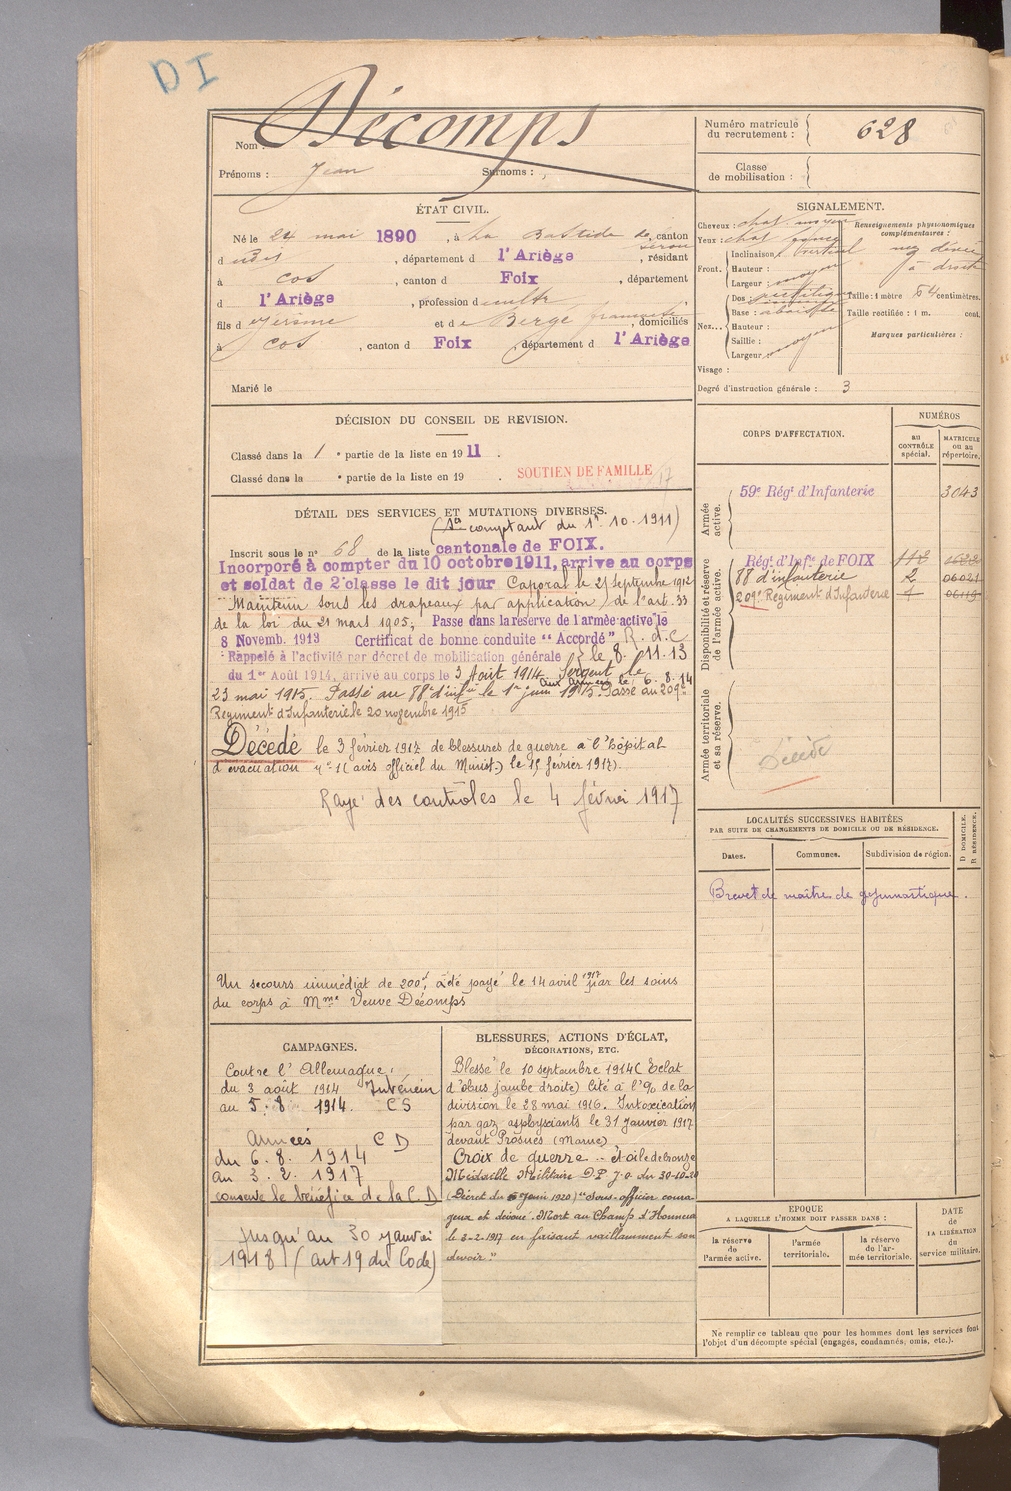 DI
Nom : Décomps
Prénoms : Jean Surnoms :
Numéro matricule du recrutement : 628
Classe de mobilisation :
ÉTAT CIVIL.
Né le 24 mai 1890, à La Bastide de Sérou, canton
d udit, département d l'Ariège, résidant
à Cos, canton d Foix, département
d l'Ariège, profession de culte
fils d Jérôme et de Berge françoise, domiciliés
à Cos, canton d Foix, département d l'Ariège
Marié le
SIGNALEMENT.
Cheveux : chat. moyen
Yeux : chat foncé
Front. Inclinaison : vertical
Hauteur :
Largeur : moyen
Nez... Dos : rectiligne
Base : abaissée
Hauteur :
Saillie :
Largeur moyen
Visage :
Renseignements physionomiques complémentaires :
nez dévié
à droite
Taille : 1 mètre 64 centimètres.
Taille rectifiée : 1 m. cent.
Marques particulières :
Degré d'instruction générale : 3
DÉCISION DU CONSEIL DE REVISION.
Classé dans la 1 e partie de la liste en 1911.
Classé dans la e partie de la liste en 19 .
SOUTIEN DE FAMILLE
DÉTAIL DES SERVICES ET MUTATIONS DIVERSES.
comptant du 1er 10-1911)
Inscrit sous le n° 68 de la liste cantonale de FOIX.
Incorporé à compter du 10 octobre 1911, arrive au corps
et soldat de 2e classe le dit jour Caporal le 21 septembre 1912
Maintenu sous les drapeaux par application de l'art. 33
de la loi du 21 mars 1905, Passe dans la réserve de l'armée active le
8 Novemb. 1913 Certificat de bonne conduite "Accordé" R.d.C
Rappelé à l'activité par décret de mobilisation générale le 8-11-13
du 1er Août 1914, arrivé au corps le 3 Août 1914. Sergent le
aux armées le 6.8.14
23 mai 1915. Passé au 88e d'infie le 1er juin 1915. Passé au 209e
Régiment d'Infanterie le 20 novembre 1915
Décédé le 3 février 1917 de blessures de guerre à l'hôpital
d'évacuation n°1 (avis officiel du Minist.) le 15 février 1917).
Rayé des contrôles le 4 février 1917
Un secours immédiat de 200f a été payé le 14 avril 1917 par les soins
du corps à Mme Veuve Décomps
CORPS D'AFFECTATION.
NUMÉROS
au CONTRÔLE spécial.
MATRICULE ou au répertoire.
Armée active.
59e Régt d'Infanterie 3043
Disponibilité et réserve de l'armée active.
Régt d'Infie de FOIX 112
88 d'infanterie 2 06021
209e Régiment d'Infanterie
Armée territoriale et sa réserve.
Décédé
LOCALITÉS SUCCESSIVES HABITÉES
PAR SUITE DE CHANGEMENTS DE DOMICILE OU DE RÉSIDENCE.
D DOMICILE.
R RÉSIDENCE.
Dates. Communes. Subdivision de région.
Brevet de maître de gymnastique.
CAMPAGNES.
Contre l'Allemagne.
du 3 août 1914 Intérieur
au 5.8 1914. CS
Armées CD
du 6.8.1914
au 3.2.1917
conserve le bénéfice de la C.D
Jusqu'au 30 janvier
1918 (art 19 du Code)
BLESSURES, ACTIONS D'ÉCLAT,
DÉCORATIONS, ETC.
Blessé le 10 septembre 1914 (Eclat
d'obus jambe droite) Cité à l'O/ de la
division le 28 mai 1916. Intoxication
par gaz asphyxiants le 31 janvier 1917
devant Prosnes (Marne)
Croix de guerre - étoile de bronze
Médaille Militaire D.P. J.O. du 30-10-20
(Décret du 5 Juin 1920) "Sous-officier coura-
geux et dévoué. Mort au Champ d'Honneur
le 3-2-1917 en faisant vaillamment son
devoir"
EPOQUE
A LAQUELLE L'HOMME DOIT PASSER DANS :
DATE de LA LIBÉRATION du service militaire.
la réserve de l'armée active.
l'armée territoriale.
la réserve de l'armée territoriale.
Ne remplir ce tableau que pour les hommes dont les services font
l'objet d'un décompte spécial (engagés, condamnés, omis, etc.).